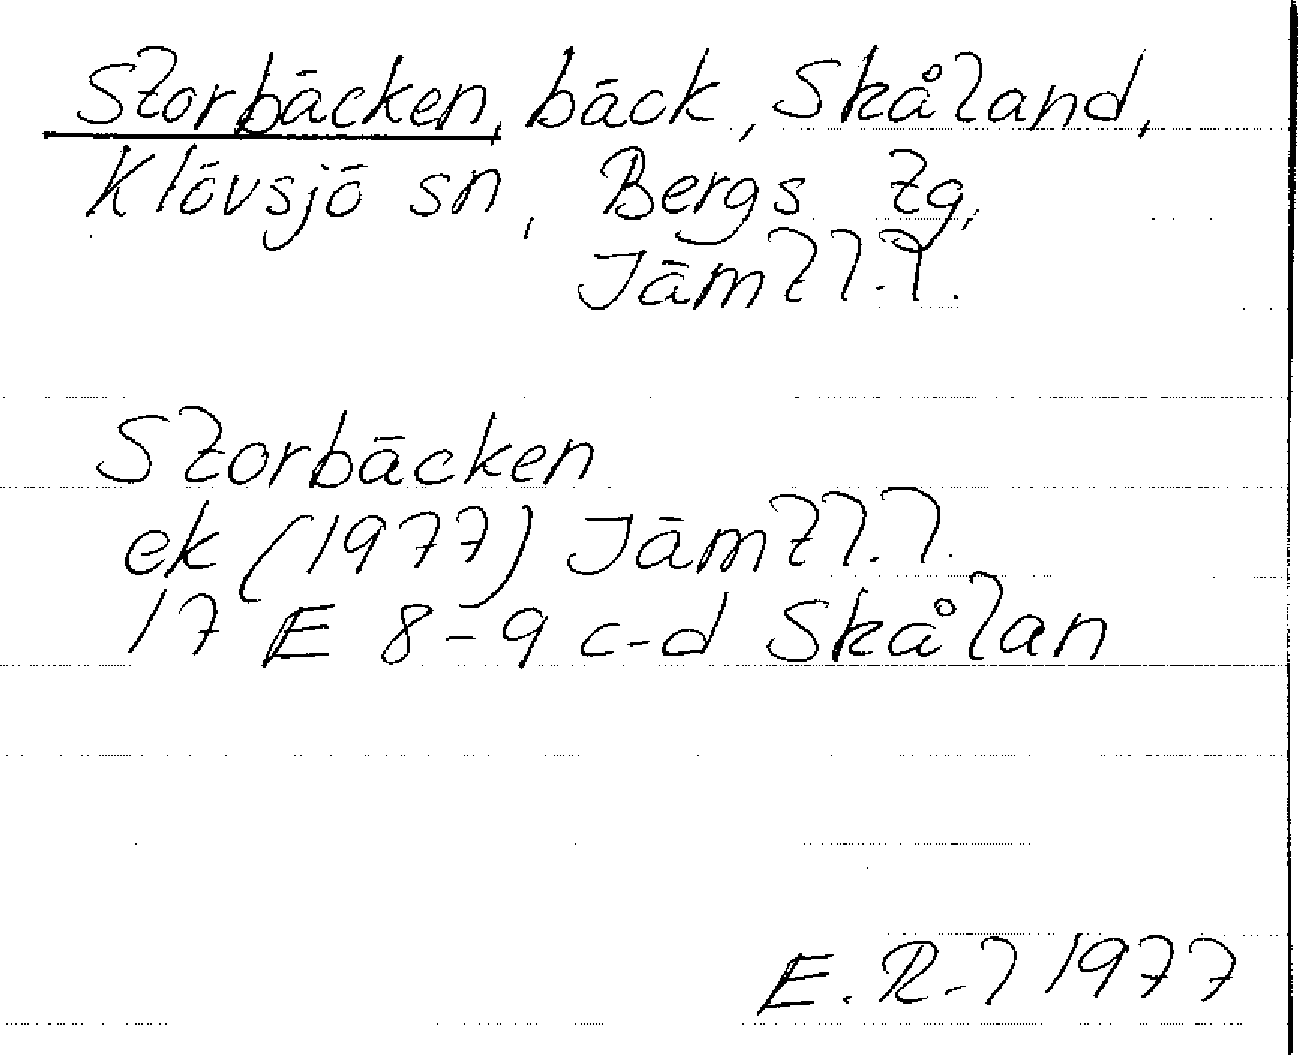 Storbäcken, bäck, Skåland,
Klövsjö sn, Bergs tg,
Jämtl.l.
Storbäcken
ek (1977) Jämtl.l.
17 E 8-9 c-d Skålan
E.R-l 1977